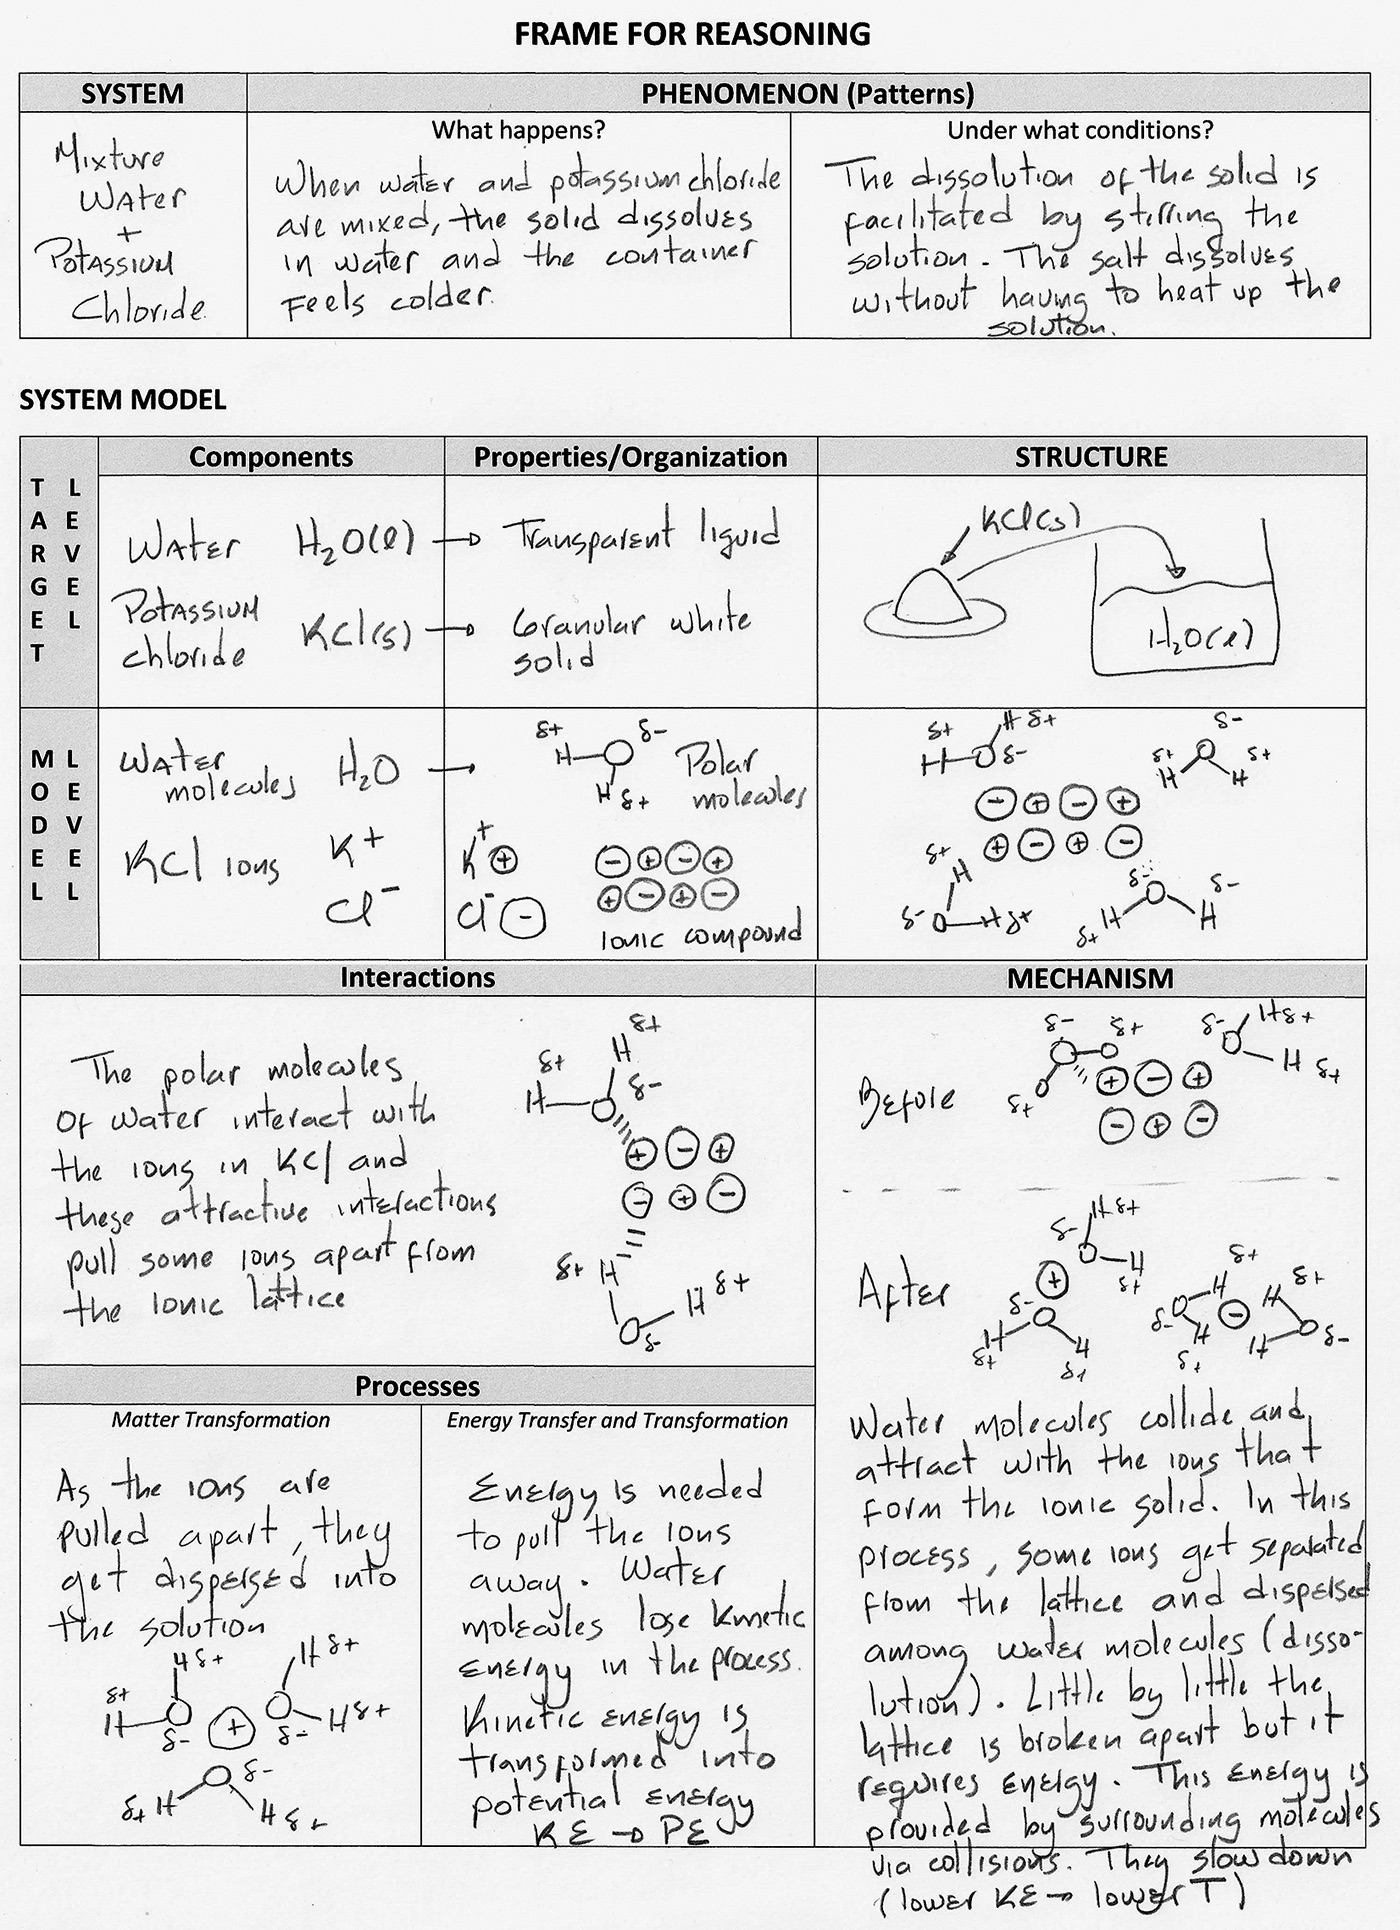 FRAME FOR REASONING
SYSTEM
PHENOMENON (Patterns)
Mixture
Water
+
Potassium
Chloride
What happens?
When water and potassium chloride
are mixed, the solid dissolves
in water and the container
Feels colder.
Under what conditions?
The dissolution of the solid is
facilitated by stirring the
solution. The salt dissolves
without having to heat up the
solution.
SYSTEM MODEL
TARGET LEVEL
Components
Properties/Organization
STRUCTURE
Water H₂O(l) → Transparent liquid
Potassium
chloride KCl(s) → Granular white
solid
KCl(s)
H₂O(l)
MODEL LEVEL
Water
molecules H₂O →
δ+ δ-
H
H δ+
Polar
molecules
KCl ions K+
Cl-
K+ +
Cl- -
- + - +
+ - + -
Ionic compound
δ+ H δ+
H δ-
δ-
δ+ δ+
H H
- + - +
+ - + -
δ+
H
δ- H δ+
δ- δ-
H H
δ+
Interactions
The polar molecules
Of water interact with
the ions in KCl and
these attractive interactions
pull some ions apart from
the ionic lattice
δ+
δ+ H
H δ-
+ - +
- + -
δ+ H
H δ+
δ-
MECHANISM
Before
δ- δ+
δ+
δ- H δ+
H δ+
+ - +
- + -
After
H δ+
δ-
H
δ+
+
δ-
H H
δ+ δ+
δ+
H
δ- H
δ+
-
δ+
H
H δ-
Water molecules collide and
attract with the ions that
form the ionic solid. In this
process, some ions get separated
from the lattice and dispersed
among water molecules (disso-
lution). Little by little the
lattice is broken apart but it
requires energy. This energy is
provided by surrounding molecules
via collisions. They slow down
(lower KE → lower T)
Processes
Matter Transformation
As the ions are
pulled apart, they
get dispersed into
the solution
H δ+
δ+
H δ-
+
H δ+
H δ+
δ-
δ-
δ+ H
H δ+
Energy Transfer and Transformation
Energy is needed
to pull the ions
away. Water
molecules lose kinetic
energy in the process.
Kinetic energy is
transformed into
potential energy
KE → PE